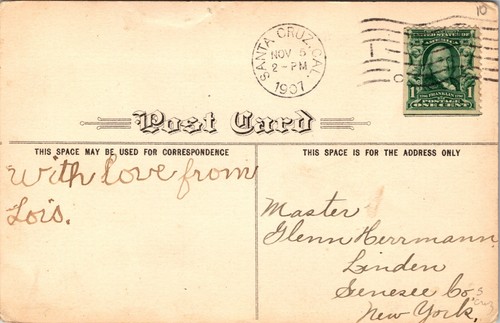 10
SANTA CRUZ, CAL.
NOV 5
2-PM
1907
UNITED STATES OF
FRANKLIN
1 1
POSTAGE
ONE CENT
Post Card
THIS SPACE MAY BE USED FOR CORRESPONDENCE
THIS SPACE IS FOR THE ADDRESS ONLY
With love from
Lois.
Master
Glenn Herrmann
Linden
Genesee Co.
New York.